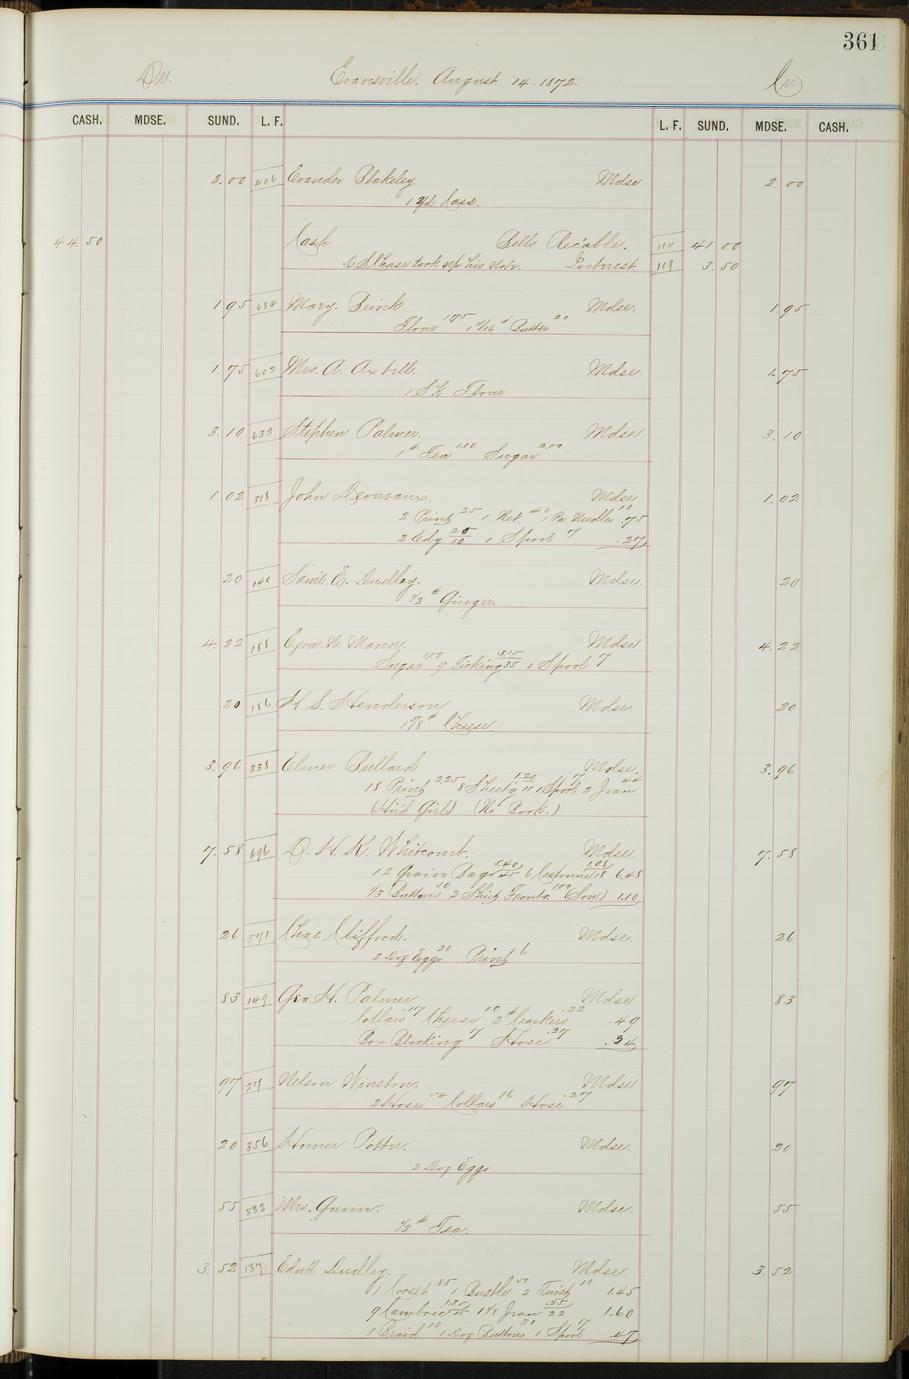 361
Dr. Evansville. August 14. 1872. Cr.
CASH. MDSE. SUND. L. F. L. F. SUND. MDSE. CASH.
2.00 406 Evander Blakeley Mdse 2.00
44.50 Cash Bills Rec'able. 114 41 00
took up his Note. Interest. 119 3.50
1.95 634 Mary. Mdse. 1.95
Flour 1.75 Butter 20
1.75 602 Mrs. A. Axtell. Mdse. 1.75
1 Sk Flour
3.10 632 Stephen Palmer. Mdse 3.10
1# Tea 1.10 Sugar 2.00
1 02 318 John Mdse. 1.02
2 Print 25 1 Net 40 1 Pa Needles 10 .75
2 Edg 20/10 1 Spool 7 .27
20 140 Sam'l. E. Dudley. Mdse. 20
1/2 # Ginger.
4.22 188 Ezra W. Mdse 4.22
Sugar 1.00 9 Ticking 3.15/35 1 Spool 7
20 186 H. S. Henderson Mdse. 20
1 1/8 # Cheese.
3.96 338 Elmer Bullard. Mdse. 3.96
18 Print 2.25 8 Sheetg 1.20/15 1 Spool 7 2 Jean 44
(Hird Girl) (No Book.)
7.58 696 D. H. K. Whitcomb. Mdse. 7.58
12 Grain Bags 5.40/45 6 1.08/18 6.48
1/3 Buttons 10 2 Shirt Fronts. 1.00 (Son) 1.10
26 571 Chas. Clifford. Mdse. 26
2 Doz Eggs 20 Print 6
83 149 Geo. H. Palmer Mdse 83
Collars 17 Cheese 10 2# Crackers .22 .49
Box Blacking 7 Hose 27 .34
97 27 Nelson Winston. Mdse 97
2 Hose 54 Collars 16 Hose .27
20 356 Homer Potter. Mdse. 20
2 Doz Eggs
55 582 Mrs. Gunn. Mdse. 55
1/2 # Tea.
3.52 137 Edwd. Dudley. Mdse. 3.52
1 Corset .85 1 Bustle 50 2 10 1.45
9 Cambric 1.35/15 1 1/8 Jean .25/22 1.60
1 Braid 10 1 Doz Buttons 30 1 Spool 7 .47